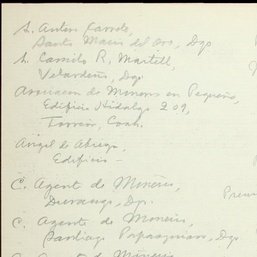 S. Antonio Garrote,
Santa Maria del Oro, Dgo
S. Camilo R. Martell,
Velardeña, Dgo
de Mineros en Pequeño,
Edificio Hidalgo 209,
Torreón, Coah.
Angel de
Edificio -
C. Agente de Minería,
Durango, Dgo.
C. Agente de Minería,
Santiago Papasquiaro, Dgo
C. Agente de Minería